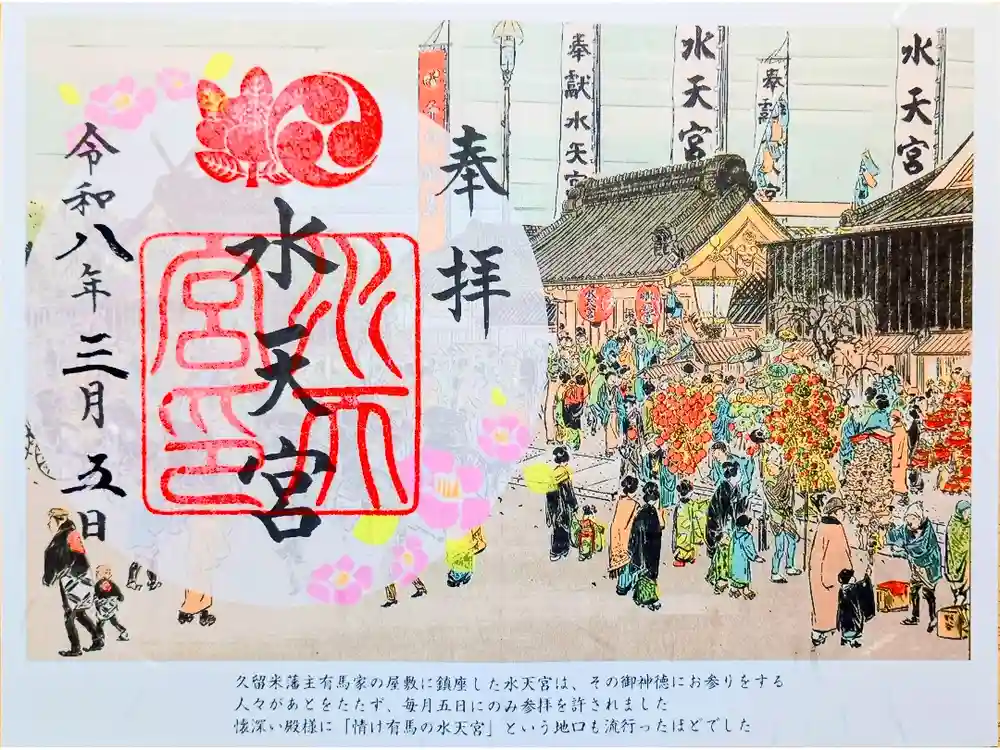 奉拝
水天宮
令和八年三月五日
水天宮印
奉獻水天宮
水天宮
奉獻
宮
水天宮
久留米藩主有馬家の屋敷に鎮座した水天宮は、その御神徳にお参りをする
人々があとをたたず、毎月五日にのみ参拝を許されました
懐深い殿様に「情け有馬の水天宮」という地口も流行ったほどでした